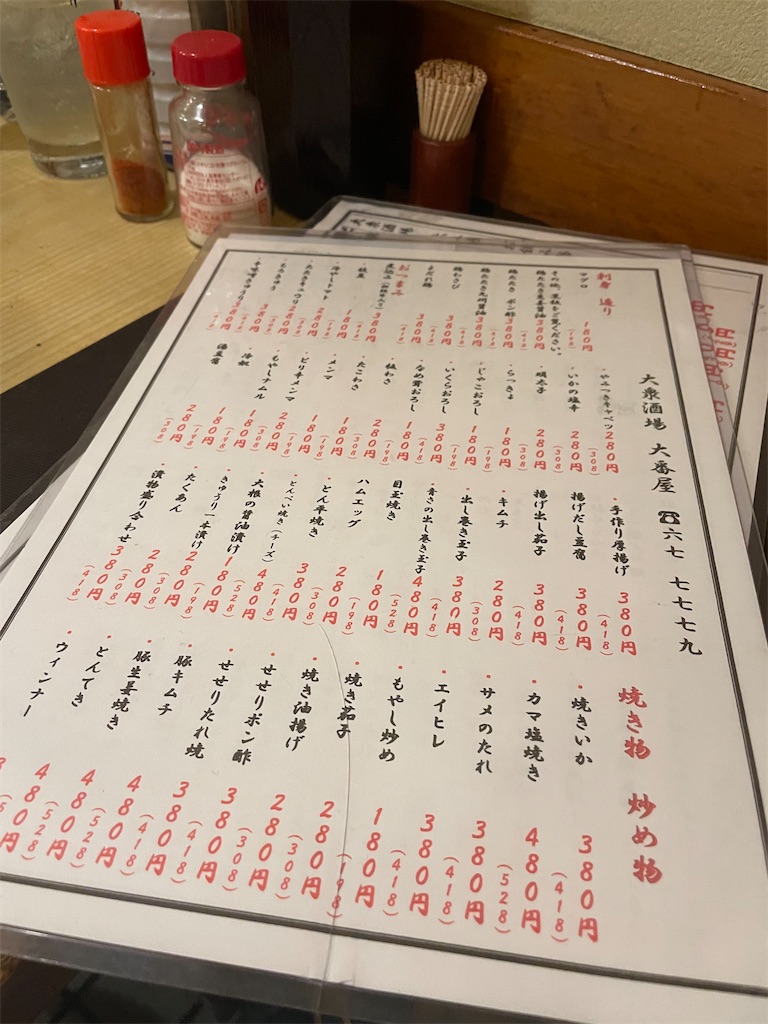 大衆酒場 大番屋 ☎六七 七七七九
刺身 造り
マグロ 180円 (198)
その他、黒板をご覧ください。
鶏たたき生姜醤油 380円 (418)
鶏たたき ポン酢 380円 (418)
鶏たたき九州醤油 380円 (418)
鶏わさび 380円 (418)
よだれ鶏 380円 (418)
おつまみ
枝豆 180円
冷やしトマト 280円
たたきキュウリ 280円 (308)
もろきゅう
・やみつきキャベツ 280円 (308)
・いかの塩辛 280円 (308)
・明太子 280円 (308)
・らっきょ 180円 (198)
・じゃこおろし 180円 (198)
・いくらおろし 380円 (418)
・なめ茸おろし 180円 (198)
・板わさ 280円
・たこわさ
・メンマ 180円 (198)
・ピリ辛メンマ
・もやしナムル
・冷奴 180円 (198)
湯豆腐 280円 (308)
・手作り厚揚げ 380円 (418)
揚げだし豆腐 380円 (418)
揚げ出し茄子 380円 (418)
・キムチ 280円 (308)
・出し巻き玉子 380円 (418)
・青さの出し巻き玉子 480円 (528)
目玉焼き 180円 (198)
ハムエッグ 280円 (308)
・とん平焼き 380円 (418)
・とんぺい焼き(チーズ) 480円 (528)
・大根の醤油漬け 180円 (198)
・きゅうり一本漬け 280円
・たくあん 280円 (308)
・漬物盛り合わせ 380円 (418)
焼き物 炒め物
・焼きいか 380円 (418)
・カマ塩焼き 480円 (528)
・サメのたれ 380円 (418)
・エイヒレ 380円 (418)
・もやし炒め 180円 (198)
・焼き茄子 280円 (308)
・焼き油揚げ 280円 (308)
・せせりポン酢 380円 (418)
・せせりたれ焼 380円 (418)
・豚キムチ 480円 (528)
・豚生姜焼き 480円 (528)
・とんてき 480円 (528)
・ウインナー